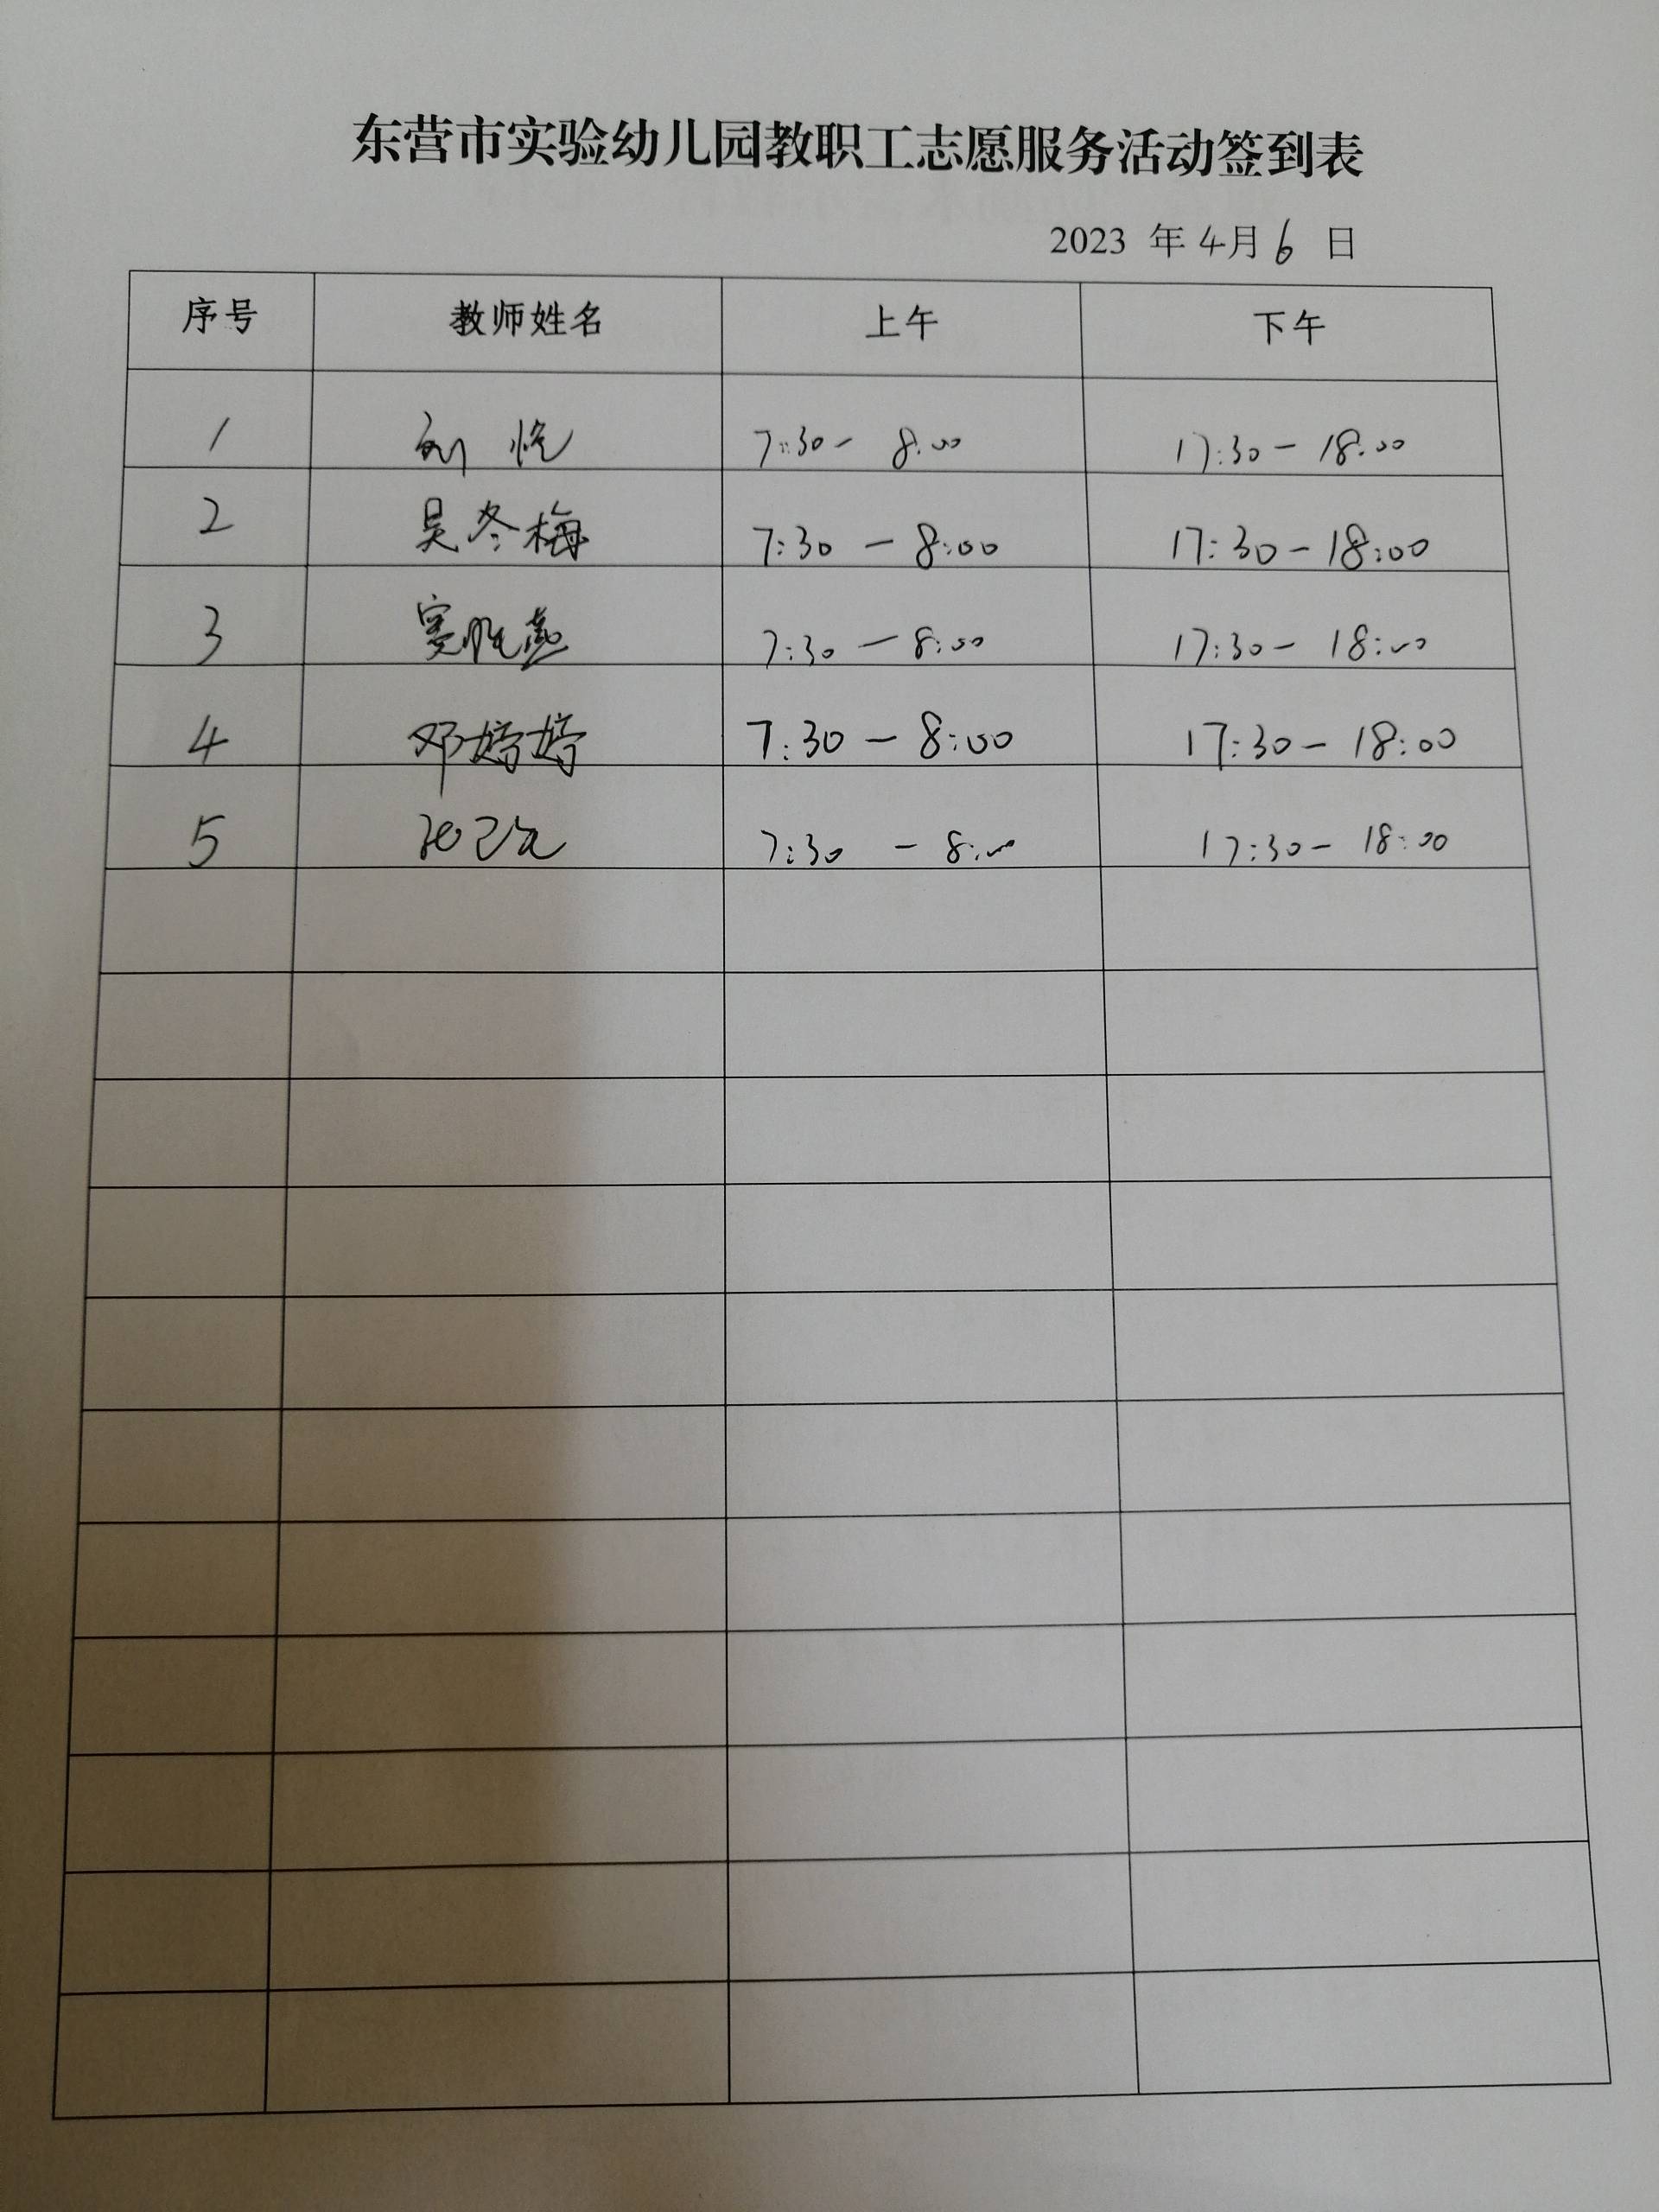 东营市实验幼儿园教职工志愿服务活动签到表
2023 年 4月 6 日
序号 教师姓名 上午 下午
1 刘 7:30- 8:00 17:30-18:00
2 吴冬梅 7:30-8:00 17:30-18:00
3 7:30-8:00 17:30-18:00
4 邓婷婷 7:30-8:00 17:30-18:00
5 7:30-8:00 17:30-18:00